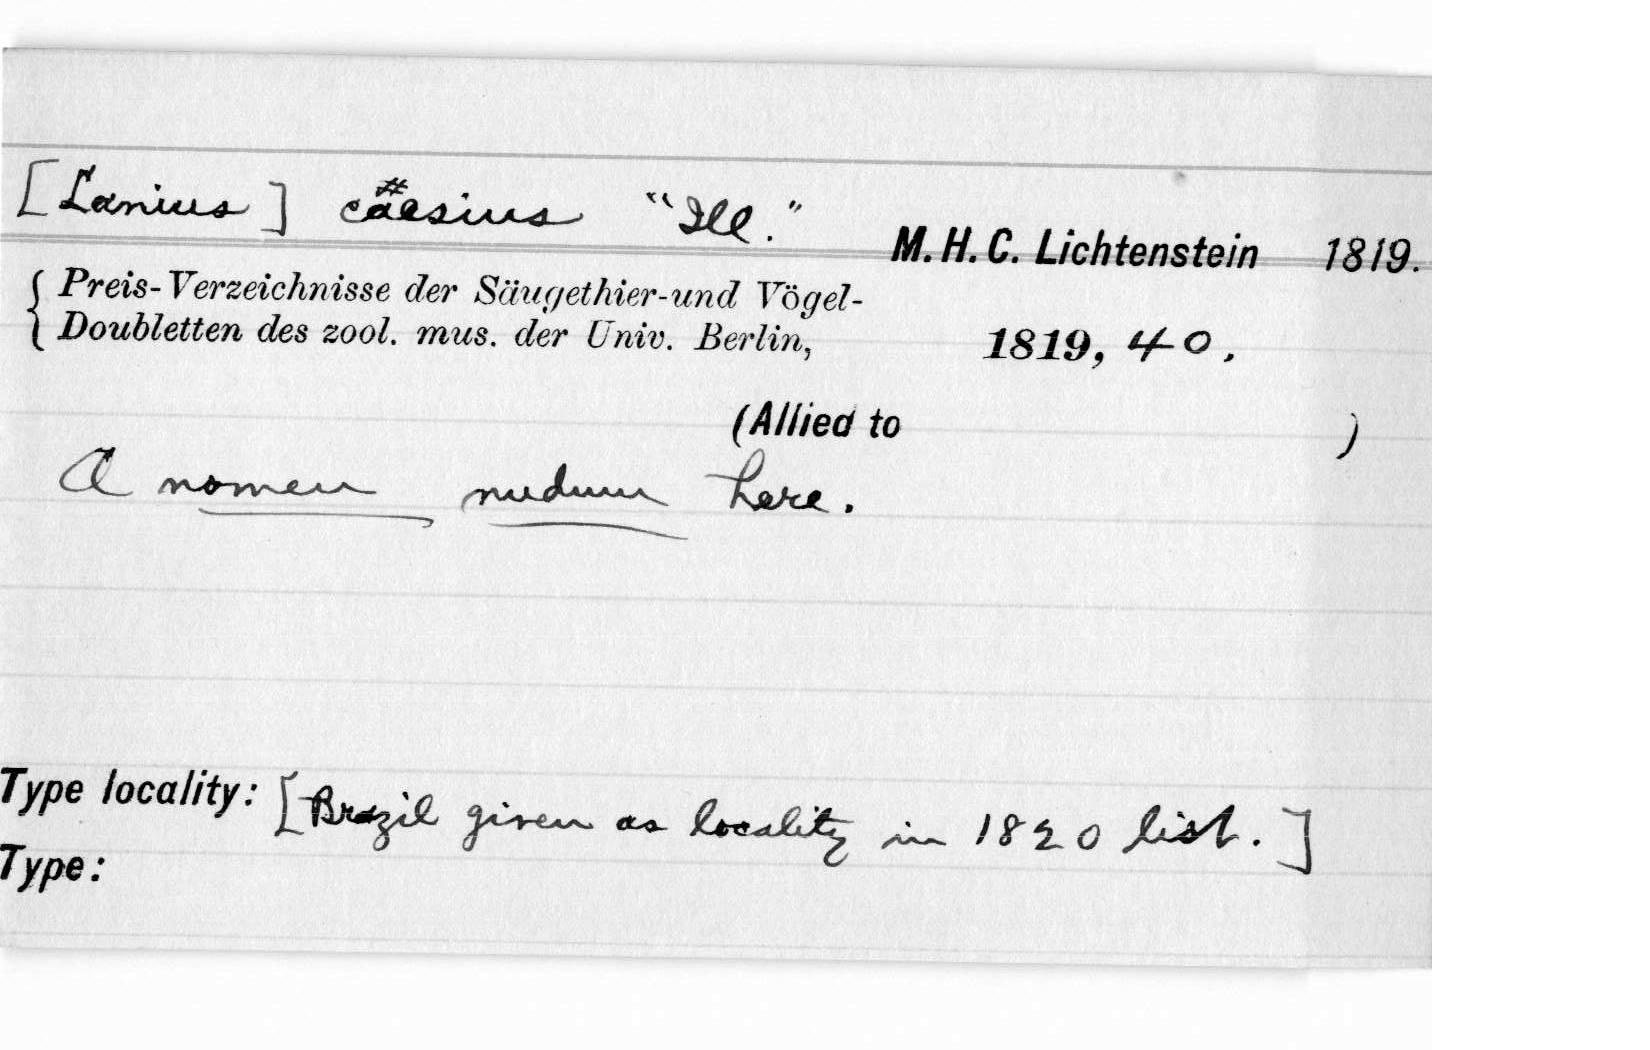 [Lanius] caesius "Ill." M. H. C. Lichtenstein 1819.
{ Preis-Verzeichnisse der Säugethier-und Vögel-
Doubletten des zool. mus. der Univ. Berlin, 1819, 40.
(Allied to )
A nomen nudum here.
Type locality: [Brazil given as locality in 1820 list.]
Type: